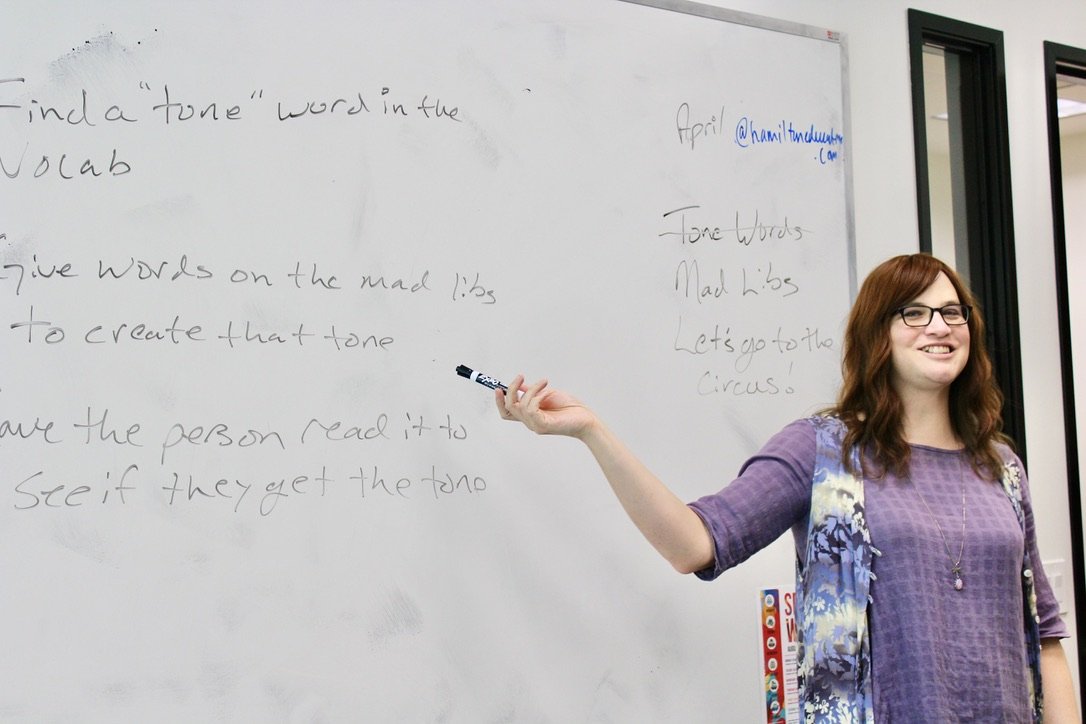 Find a "tone" word in the
Vocab
Give words on the mad libs
to create that tone
ave the person read it to
see if they get the tone
April @hamiltoneducation
.com
Tone Words
Mad Libs
Let's go to the
Circus!